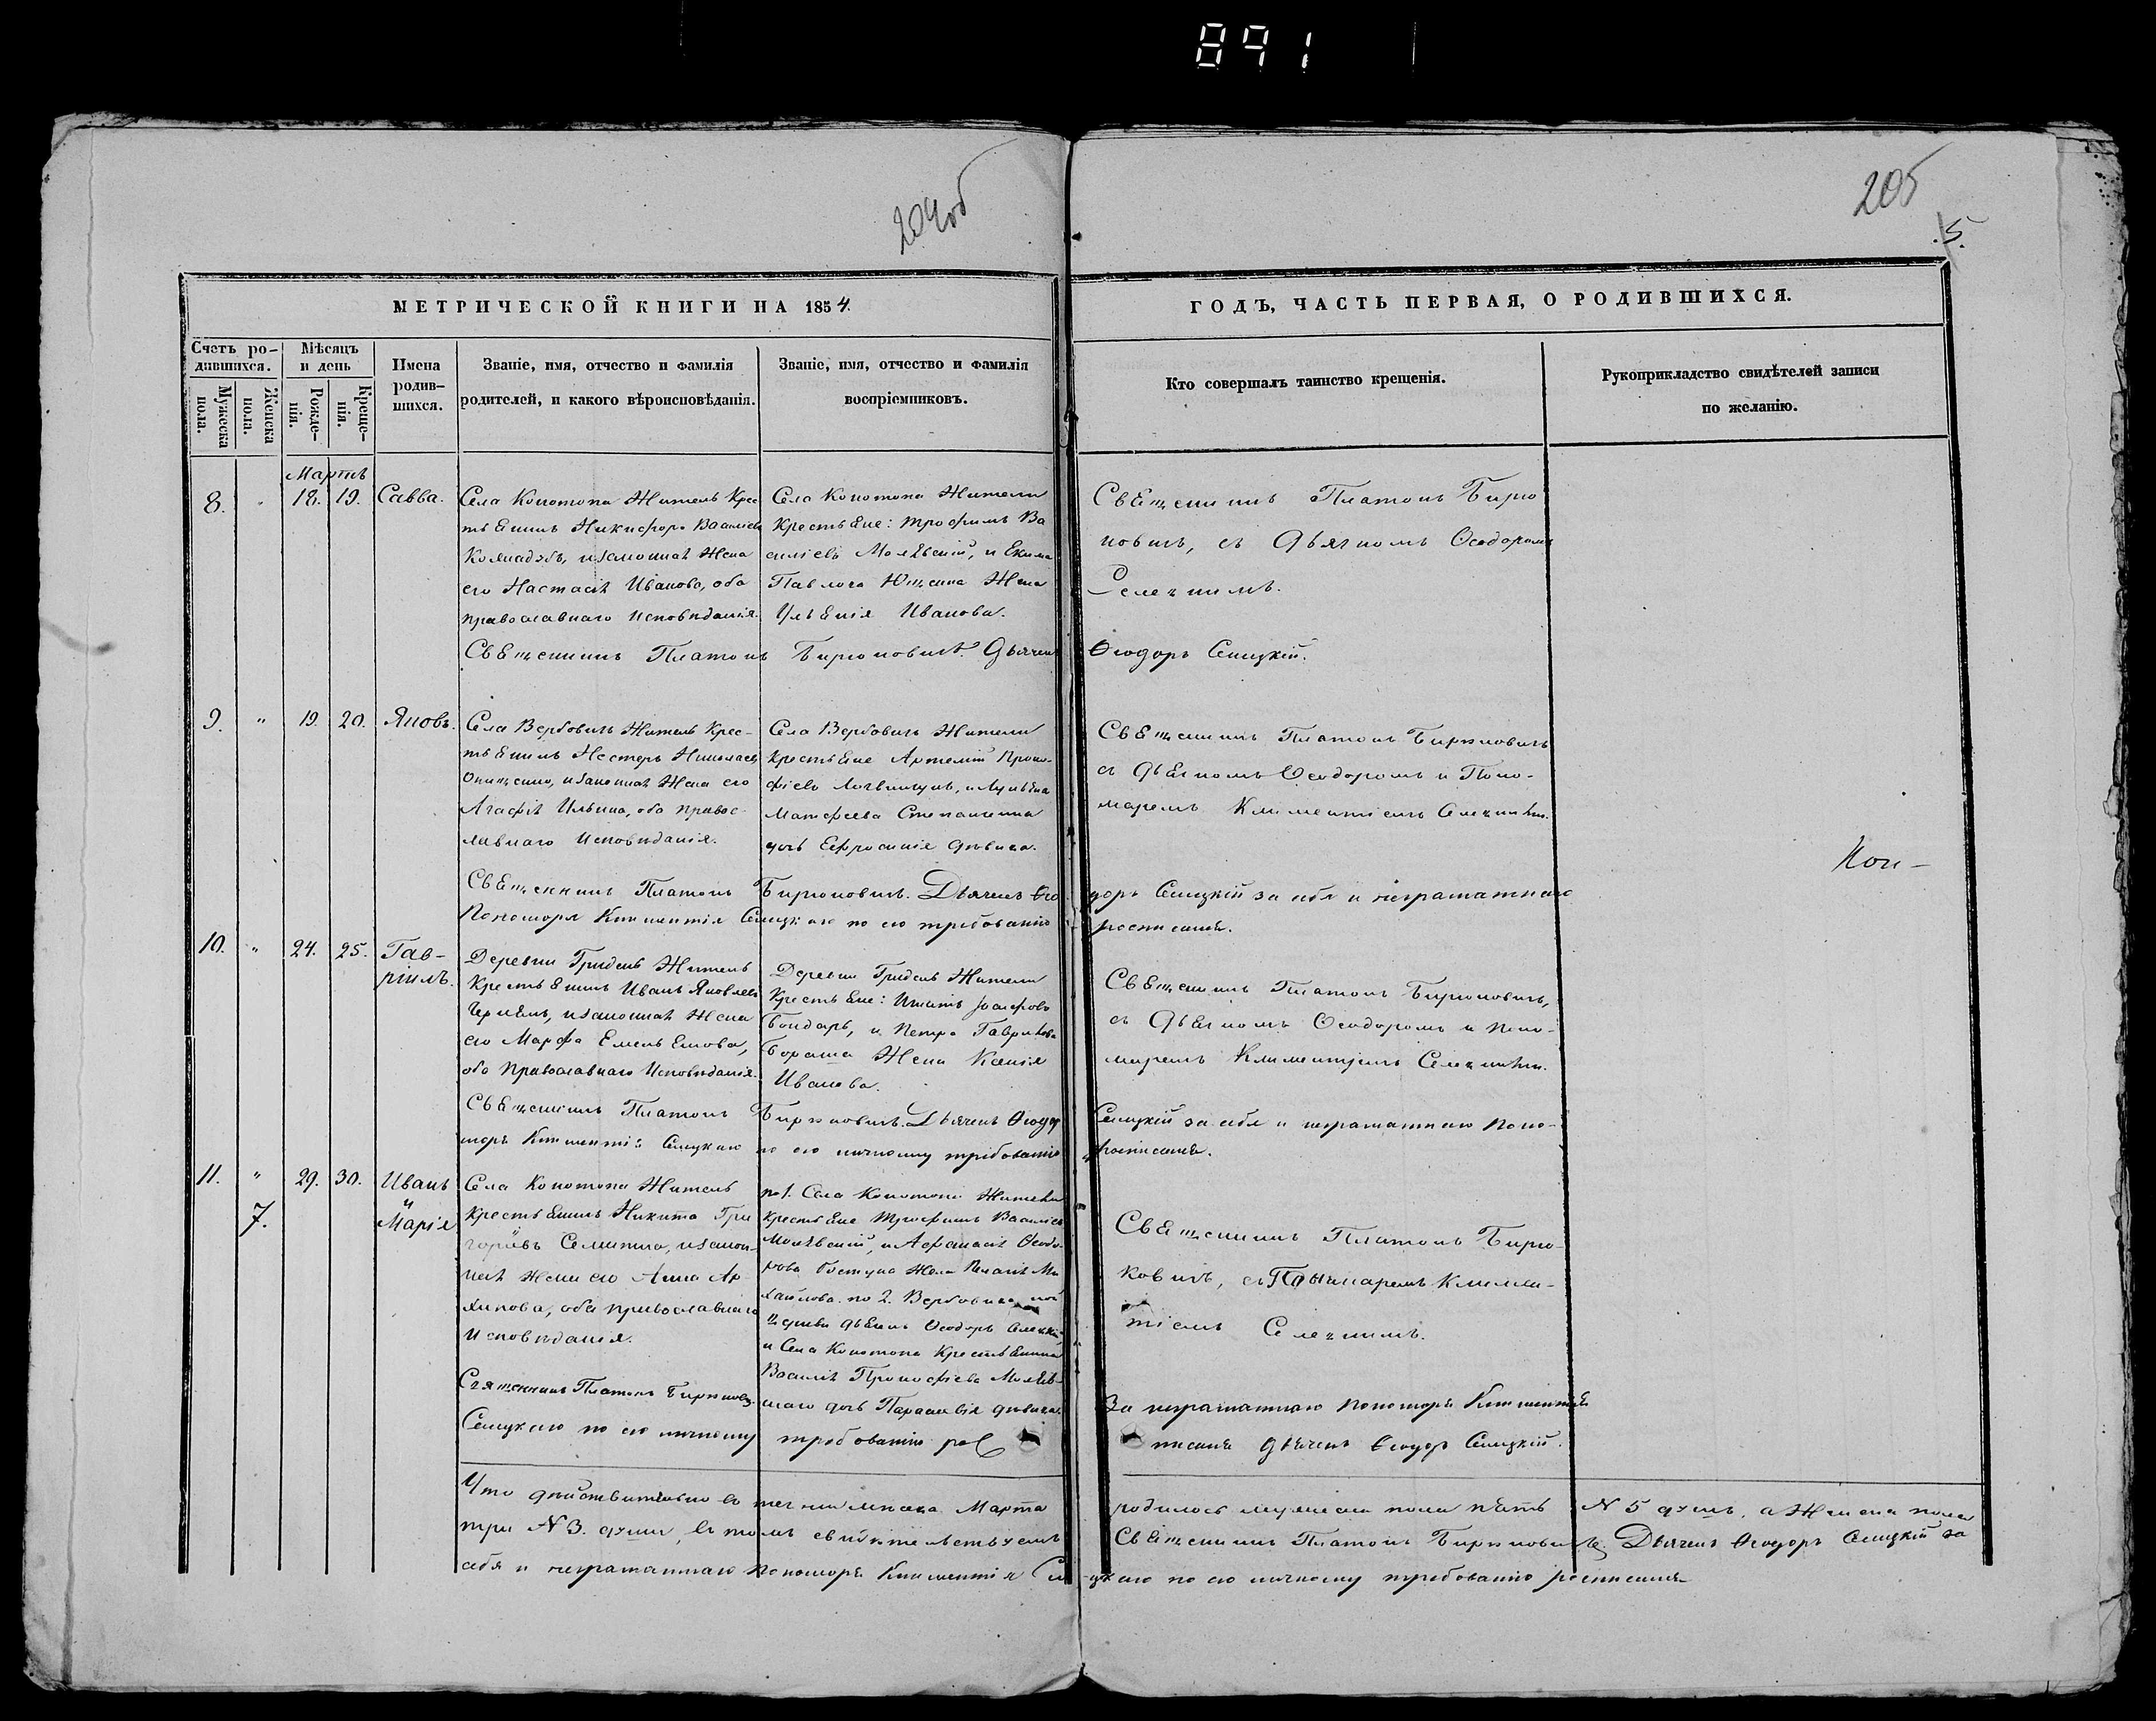 891
204об
205
5.
МЕТРИЧЕСКОЙ КНИГИ НА 1854.
ГОДЪ, ЧАСТЬ ПЕРВАЯ, О РОДИВШИХСЯ.
Счетъ ро-
дившихся.
Мужеска пола.
Женска пола.
Мѣсяцъ
и день
Рожде-
нія.
Креще-
нія.
Имена
родив-
шихся.
Званіе, имя, отчество и фамилія
родителей, и какого вѣроисповѣданія.
Званіе, имя, отчество и фамилія
воспріемниковъ.
Кто совершалъ таинство крещенія.
Рукоприкладство свидѣтелей записи
по желанію.
Мартъ
8. " 18. 19. Савва.
Села Копотопа Житель Крес
тьянинъ Никифоръ Васильевъ
и законная Жена
его Настасія Иванова, оба
православнаго исповѣданія.
Села Копотопа Жители
Крестьяне: Трофимъ Ва
силіевъ и
Павлова Жена
Иванова.
Священникъ Платонъ Бирю
ковичъ, съ Дьячкомъ Ѳеодоромъ
Селецкимъ.
Священникъ Платонъ Бирюковичъ. Дьячекъ Ѳеодоръ Селецкій.
9. " 19. 20. Яковъ.
Села Вербовичъ Житель Крес-
тьянинъ Нестеръ Николаевъ
и законная Жена его
Агафія Ильина, оба правос-
лавнаго исповѣданія.
Села Вербовичъ Жители
Крестьяне Артемій Проко-
фіевъ
Матфеева
дочь Ефросинія дѣвица.
Священникъ Платонъ Бирюковичъ
съ Дьячкомъ Ѳеодоромъ и Поно-
маремъ Климентіемъ Селецкими.
Кон-
Священникъ Платонъ Бирюковичъ. Дьячекъ Ѳеодоръ Селецкій за себя и неграматнаго
Пономоря Климентія Селецкаго по его требованію росписался.
10. " 24. 25. Гав-
ріилъ.
Деревни Гридень Житель
Крестьянинъ Иванъ Яковлевъ
и законная Жена
его Марфа Емельянова,
оба православнаго исповѣданія.
Деревни Гридень Жители
Крестьяне: Игнатъ
Бондарь, и Петра
Жена Ксенія
Иванова.
Священникъ Платонъ Бирюковичъ,
съ Дьячкомъ Ѳеодоромъ и Поно-
маремъ Климентіемъ Селецкими.
Священникъ Платонъ Бирюковичъ. Дьячекъ Ѳеодоръ Селецкій за себя и неграматнаго Поно-
моря Климентія Селецкаго по его личному требованію росписался.
11. " 29. 30. Иванъ
и
7. Марія
Села Копотопа Житель
Крестьянинъ Никита Гри
горіевъ и закон-
ная жена его Анна Ар-
хипова, оба православнаго
исповѣданія.
по 1. Села Копотопа Жители
Крестьяне Трофимъ Васильевъ
и Афанасія Ѳеодо-
рова Жена Пелагія Ми
хайлова. по 2. Вербовичской
церкви дьячекъ Ѳеодоръ Селецкій
и Села Копотопа Крестьянина
Василія Прокофіева
дочь Параскевія дѣвица.
Священникъ Платонъ Бирю-
ковичъ, съ Пономаремъ Климен-
тіемъ Селецкимъ.
Священникъ Платонъ Бирюковичъ. За неграматнаго Пономоря Климентія
Селецкаго по его личному требованію рос писался Дьячекъ Ѳеодоръ Селецкій.
Что дѣйствительно въ теченіи мѣсяца Марта родилось мужеска пола пять N 5 душъ, а Женска пола
три N 3. души, въ томъ свидѣтельствуемъ Священникъ Платонъ Бирюковичъ. Дьячекъ Ѳеодоръ Селецкій за
себя и неграматнаго Пономоря Климентія Селецкаго по его личному требованію росписался